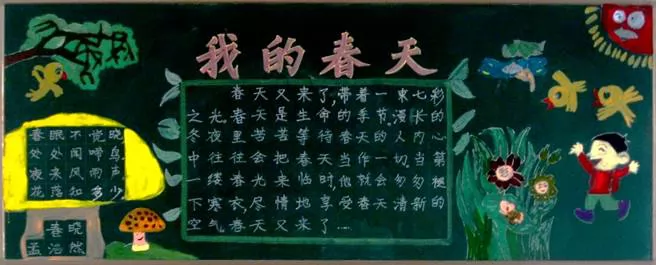 我的春天
春天又来了,带着一束七彩
之光春天是生命的季节,漫长的
冬夜里苦苦等待春天的人内心
中往往会把春天当作一切当第
一缕春光来临时,他就会匆匆褪
下寒衣,尽情地享受春天清新的
空气春天又来了……
春眠不觉晓
处处闻啼鸟
夜来风雨声
花落知多少
春晓
孟浩然